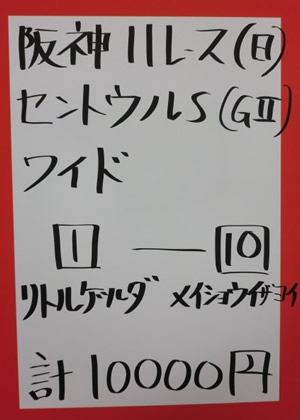 阪神11レース(日)
セントウルS(GⅡ)
ワイド
1 — 10
リトルゲルダ メイショウイザヨイ
計10000円